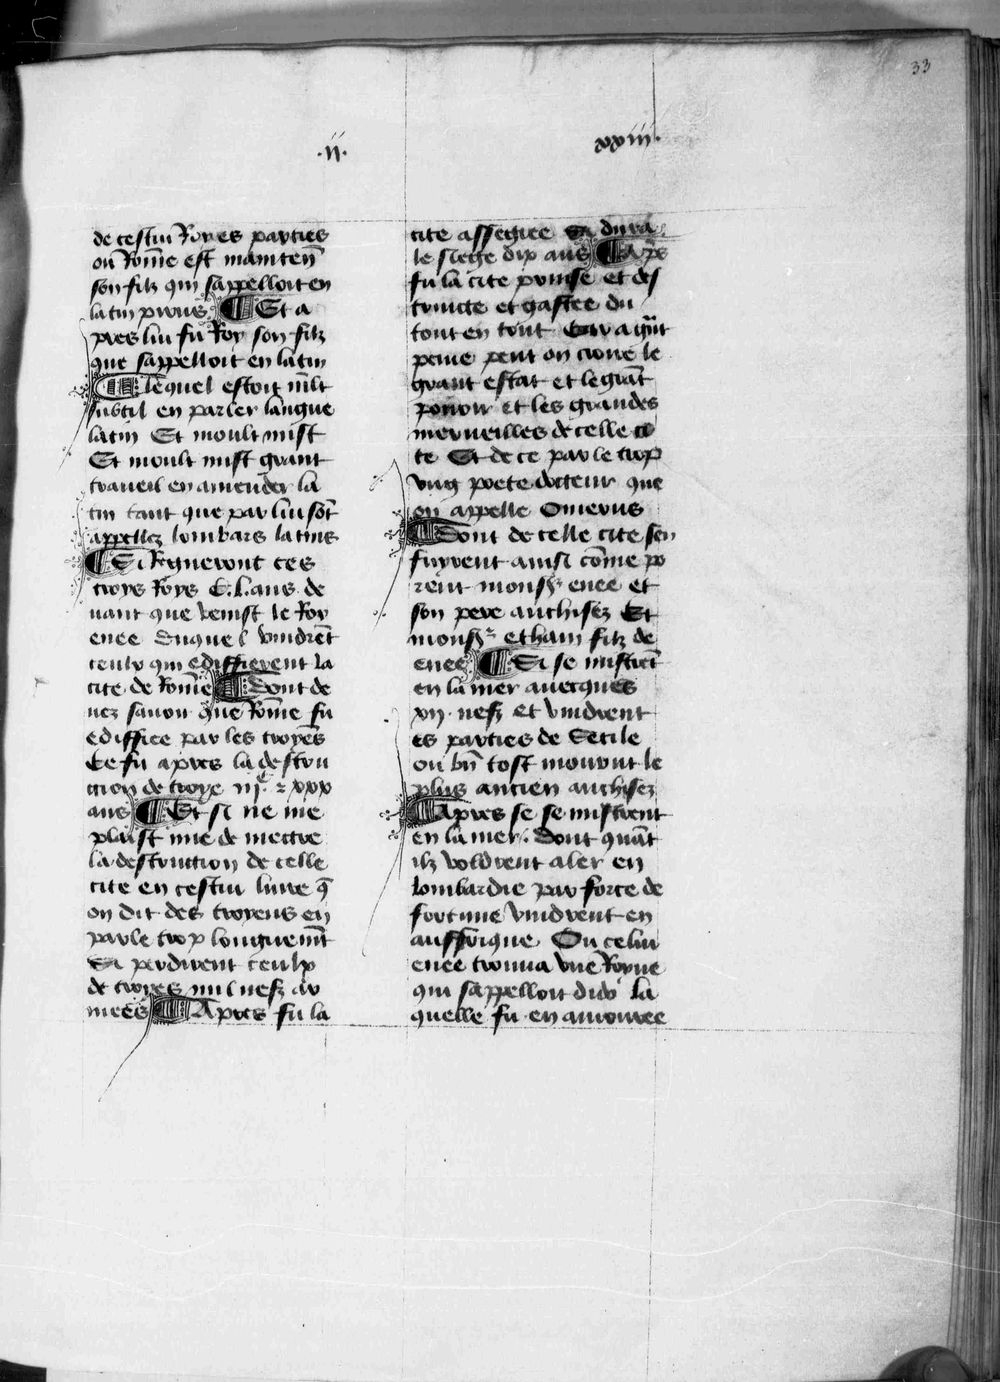 33
.ii. xxiii.
de cestui Royes parties
ou Rom̄e est mainten̄
son filz qui sappelloit en
latin picus ¶ Et a
pres lui fu Roy son filz
que sappelloit en latin
¶ lequel estoit ml̄t
subtil en parler langue
latin Et moult mist
Et moult mist grant
traueil en amender la
tin tant que par lui sōt
appellez lombars latins
¶ Si Regnerent ces
troys Roys C.l. ans de
uant que venist le Roy
enee duquel vindrēt
ceulx qui edifierent la
cite de Rom̄e ¶ Dont de
uez sauoir que Rom̄e fu
ediffiee par les troyēs
Ce fu apres la destru
cion de troye iiijc et xxx
ans ¶ Et si ne me
plaist mie de mectre
la destruction de celle
cite en cestui liure q̄
on dit des troyens en
parle trop longuemēt
Si perdirent ceulx
de troyes mil nefz ar
mees ¶ Apres fu la
cite assegiee Et dura
le siege dix ans ¶ Apꝰs
fu la cite prinse et des
truicte et gastee du
tout en tout Car a grāt
peine peut on croire le
grant estat et le grāt
pouoir et les grandes
merueilles de celle ci
te Et de ce parle trop
virg poete docteur que
on appelle Omerus
¶ Dont de celle cite sen
fuyrent ainsi cōme po
rent monsr enee et
son pere anchisez Et
monsr etham filz de
enee ¶ Si se mistrēt
en la mer auecques
xij. nefz et vindrent
es parties de Secile
ou bn̄ tost mourut le
plus ancien anchisez
¶ Apres se se mistrent
en la mer. Dont quāt
ilz voldrent aler en
lombardie par force de
fortune vindrent en
auffrique Ou celui
enee trouua vne Royne
qui sappelloit dido la
quelle fu enamouree